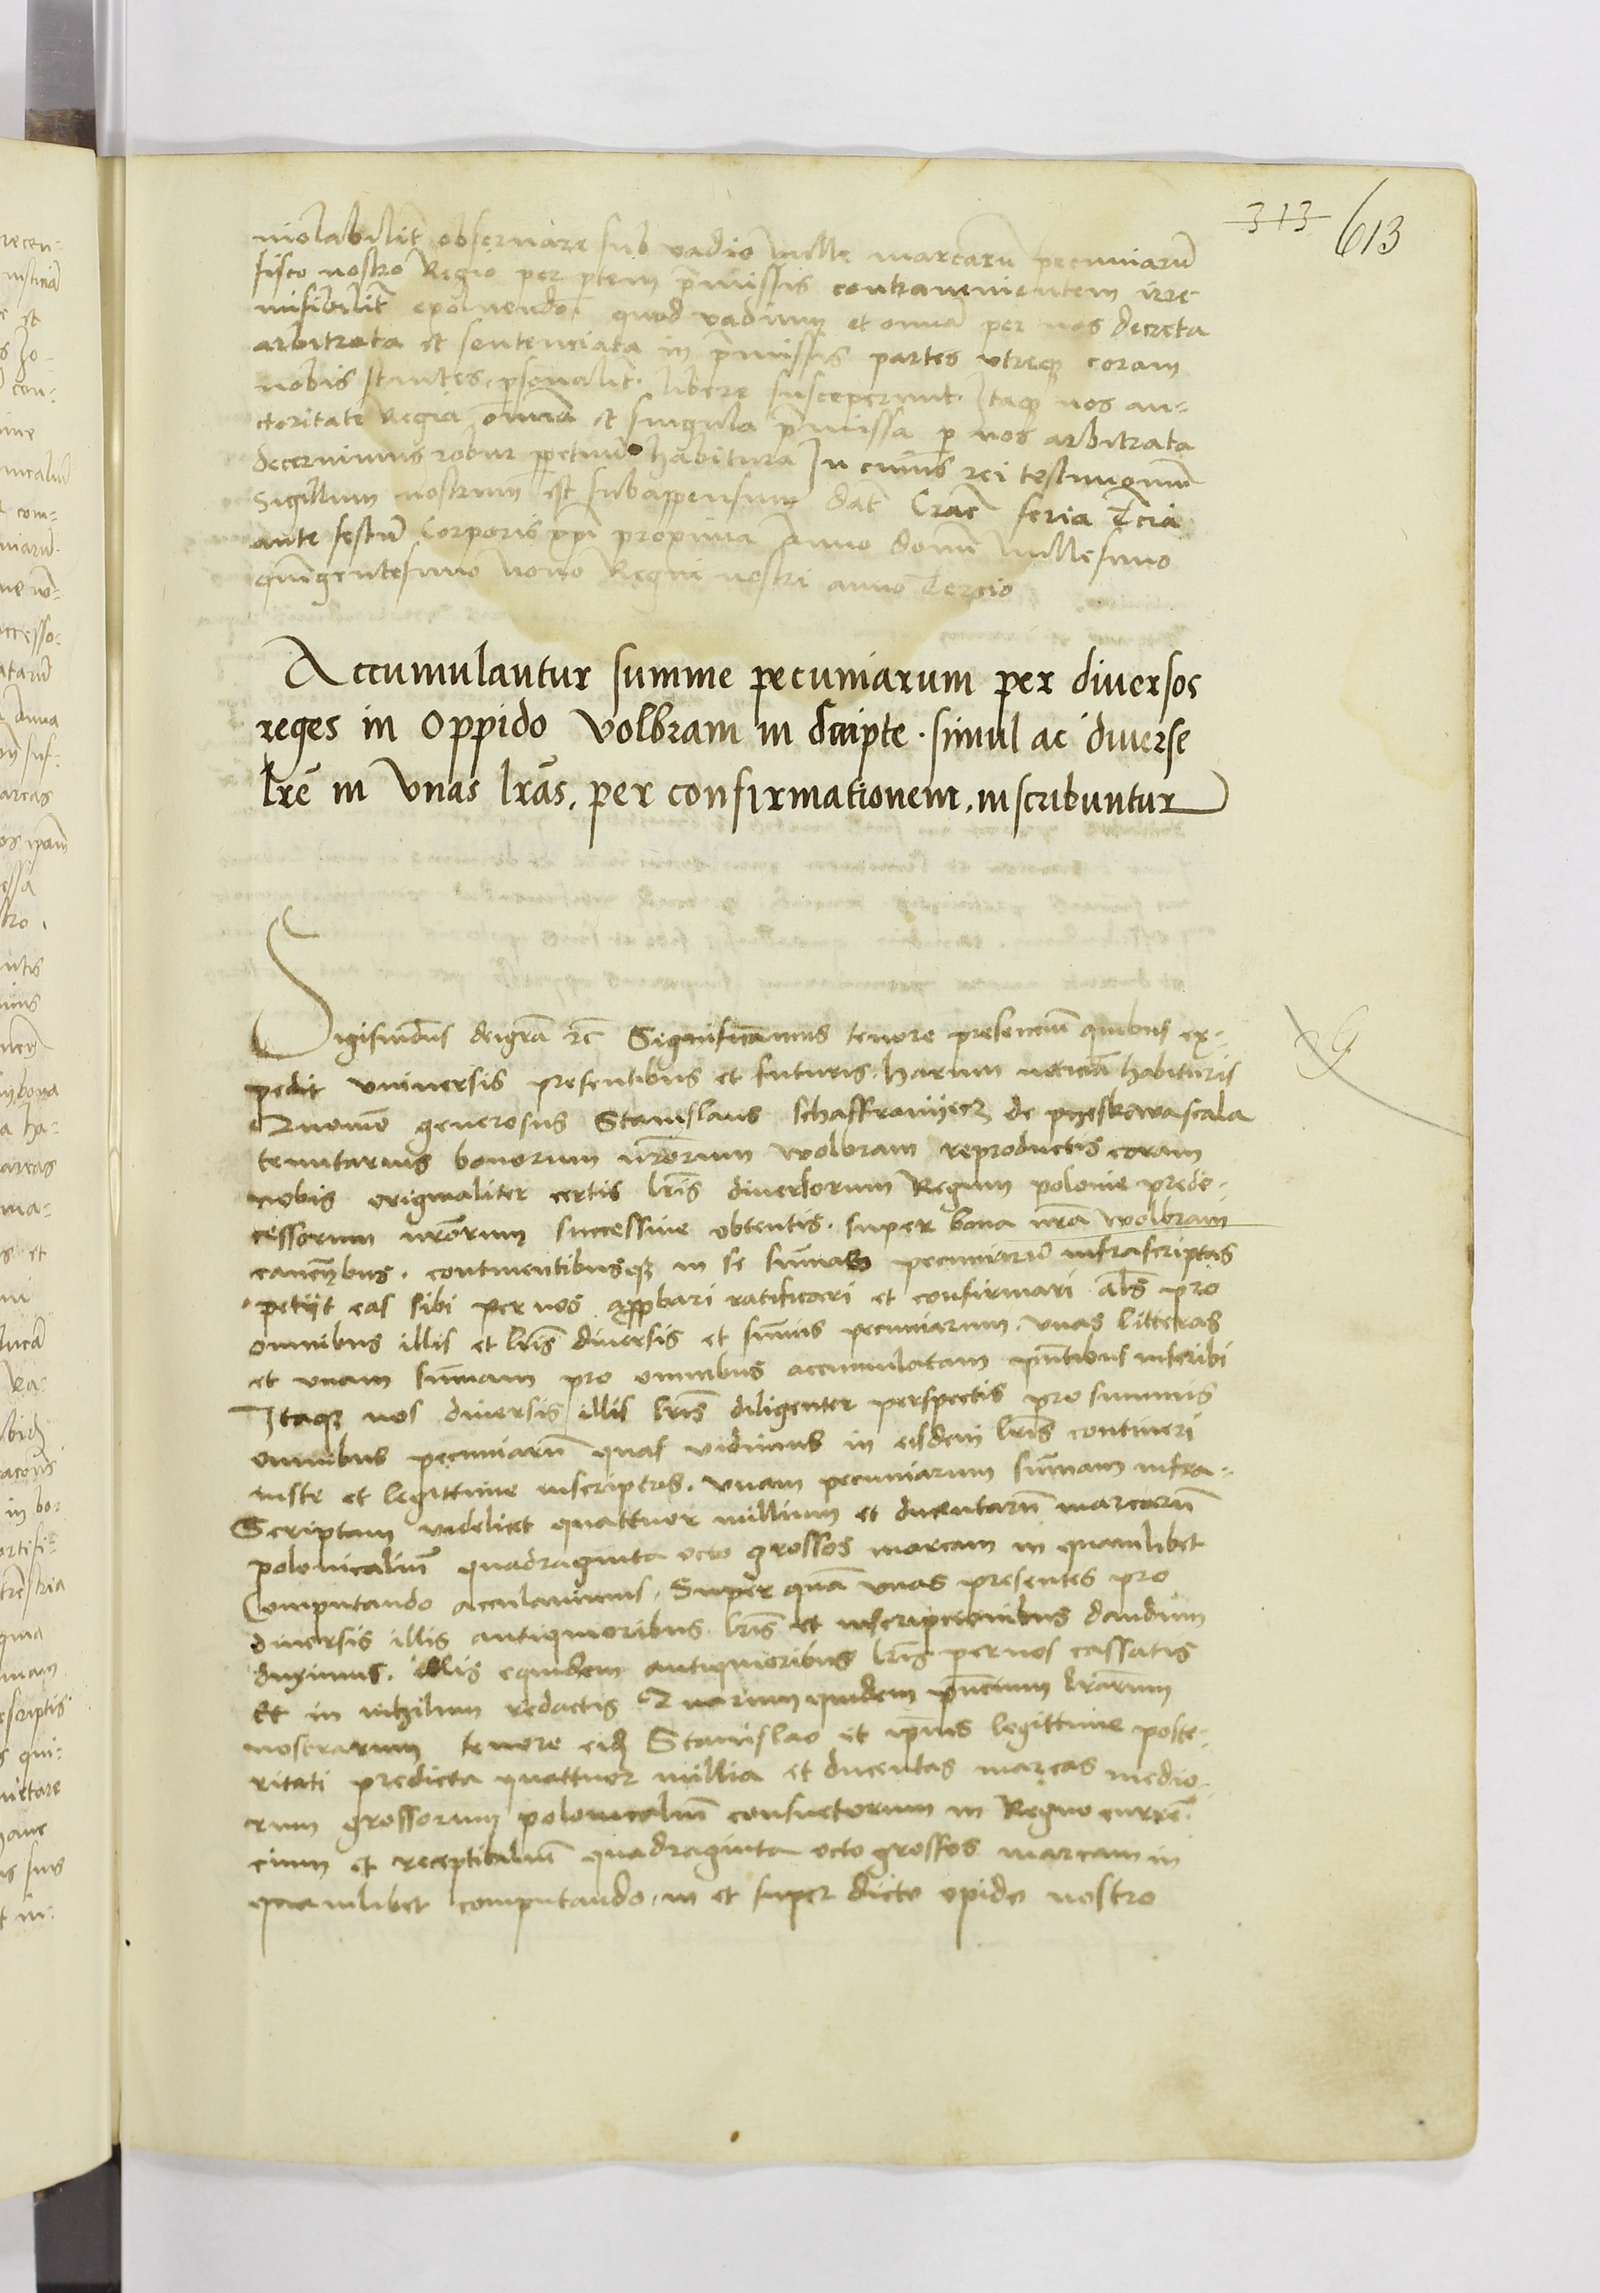 313 613
violabilit observare sub vadio mille marcarũ pecuniarũ
fisco nostro Regio per ptem p̃missis contravenientem irre
misibilit exolvendo quod vadium et omnia per nos decreta
arbitrata et sentenciata in p̃missis partes utreqȝ coram
nobis stantes p̱sonalit libere susceperunt. Itaqȝ nos au-
ctoritate Regia omnia et singula p̃missa p̱ nos arbitrata
decernimus robur p̱petuũ habitura In cuius rei testimoniũ
Sigillum nostrum est subappensum dat Crac̃ feria Tercia
ante festũ Corporis xp̃i proxima Anno domini Millesimo
quĩgentesimo Nono Regni nostri anno Tercio
Accumulantur summe pecuniarum per diversos
reges in oppido Volbram inscripte . simul ac diverse
lr̃e in Vnas lr̃as. per confirmationem. inscribuntur
Sigismũdus dei gr̃a ꝛc̃ Significamus tenore presencium quibus ex-
pedit universis presentibus et futuris harum noticiã habituris
Quomo generosus Stanislaus Schaffranyecz de pyeskowascala
tenutarius bonorum nr̃orum wolbram reproductis coram
nobis originaliter certis lr̃is diversorum Regum polonie prede-
cessorum nr̃orum successive obtentis. super bona nr̃a wolbram
canẽtibus. continentibusqȝ in se sum̃as pecuniarũ infrascriptas
petiit eas sibi per nos app̱bari ratificari et confirmari als̃ pro
omnibus illis et lr̃is diversis et sum̃is pecuniarum. unas litteras
et unam sum̃am pro omnibus accumulatam pñtibus inscribi
Itaqȝ nos diversis illis lr̃is diligenter perspectis pro summis
omnibus pecuniarũ quas vidimus in eisdem lr̃is contineri
iuste et legittime inscriptas. unam pecuniarum sum̃am infra-
Scriptam videlicet quattuor millium et ducentarũ marcarũ
polonicaliũ quadraginta octo grossos marcam in quamlibet
Computando acculavimus. Super quã unas presentes pro
diversis illis antiquioribus lr̃is et inscripcionibus dandum
duximus. illis equidem antiquioribus lr̃is per nos cassatis
Et in nihilum redactis Quarum quidem pñcium lr̃arum
nostrarum tenore eidȝ Stanislao et ip̃ius legittime poste-
ritati predicta quattuor millia et ducentas marcas medio-
rum grossorum polonicaliũ consuetorum in Regno curren-
cium et receptibiliũ quadraginta octo grossos marcam in
quamlibet computando. in et super dicto opido nostro